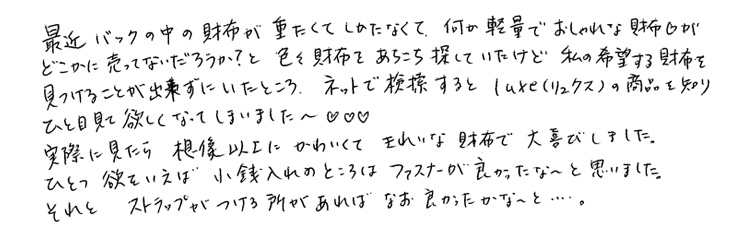 最近 バックの中の財布が重たくてしかたなくて、何か軽量でおしゃれな財布♡が
どこかに売ってないだろうか?と 色々財布をあちこち探していたけど 私の希望する財布を
見つけることが出来ずにいたところ、ネットで検索すると luxe(リュクス)の商品を知り
ひと目見て欲しくなってしまいました〜♡♡♡
実際に見たら 想像以上に かわいくて きれいな財布で 大喜びしました。
ひとつ 欲をいえば 小銭入れのところは ファスナーが良かったな〜と思いました。
それと ストラップがつける所があれば なお良かったかな〜と‥‥。